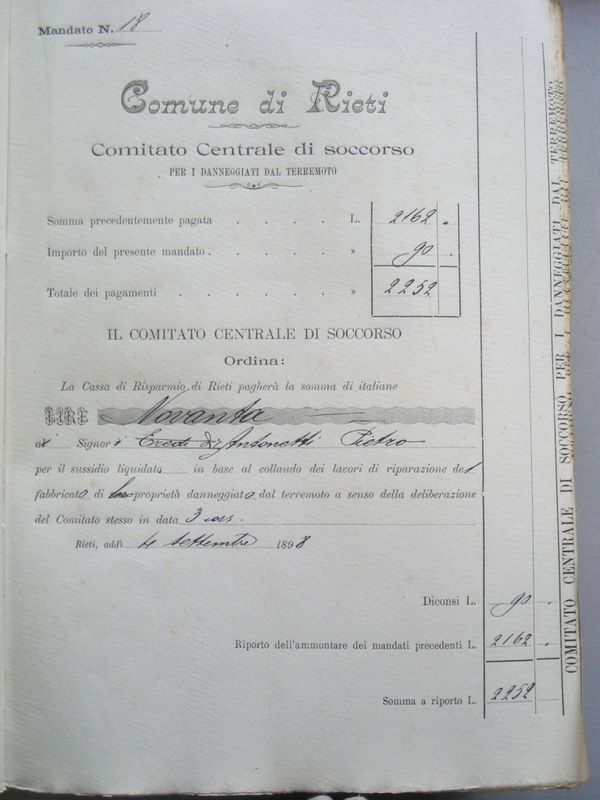 Mandato N. 18
Comune di Rieti
Comitato Centrale di soccorso
PER I DANNEGGIATI DAL TERREMOTO
Somma precedentemente pagata . . . . L. 2162 .
Importo del presente mandato . . . . . » 90 .
Totale dei pagamenti . . . . . » 2252
IL COMITATO CENTRALE DI SOCCORSO
Ordina:
La Cassa di Risparmio di Rieti pagherà la somma di italiane
LIRE Novanta
ai Signori Eredi di Antonetti Pietro
per il sussidio liquidato in base al collaudo dei lavori di riparazione del
fabbricato di loro proprietà danneggiato dal terremoto a senso della deliberazione
del Comitato stesso in data 3 cors.
Rieti, addì 4 Settembre 1898
Diconsi L. 90 .
Riporto dell'ammontare dei mandati precedenti L. 2162 .
Somma a riporto L. 2252
COMITATO CENTRALE DI SOCCORSO PER I DANNEGGIATI DAL TERREMOTO